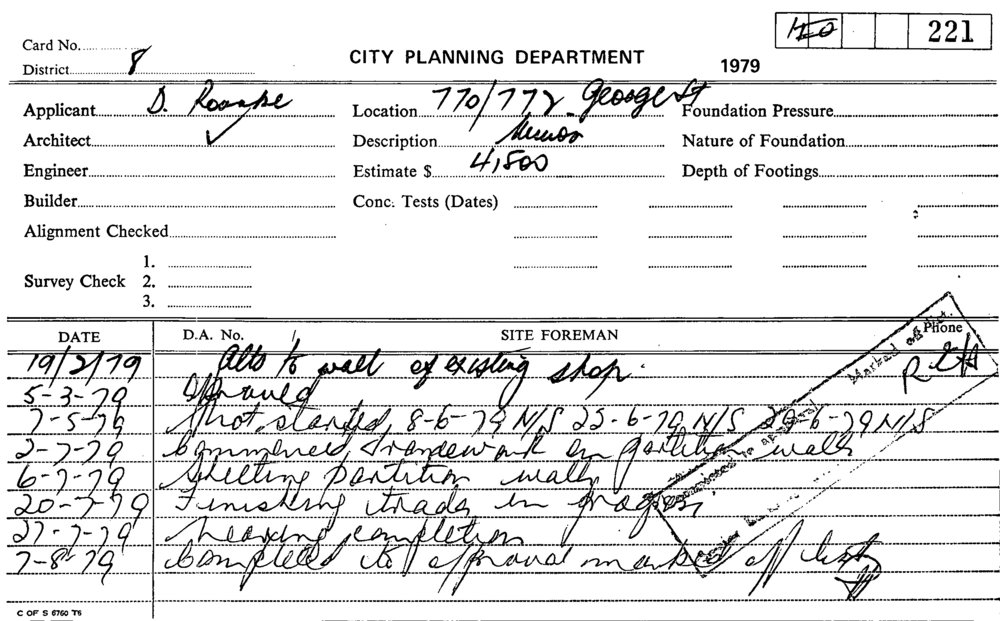 221
Card No.
District 8
CITY PLANNING DEPARTMENT
1979
Applicant D. Location 770/772 George St Foundation Pressure
Architect Description Nature of Foundation
Engineer Estimate $ 41,500 Depth of Footings
Builder Conc. Tests (Dates)
Alignment Checked
1.
Survey Check 2.
3.
DATE D.A. No. SITE FOREMAN Phone
19/2/79 Alts to wall of existing shop.
5-3-79 Approved
7-5-79 not started, 8-6-79 N/S 22-6-79 N/S 29-6-79 N/S
2-7-79 Commenced framework on partition walls
6-7-79 partition walls
20-7-79 Finishing trades in progress
27-7-79 Nearing completion
7-8-79 Completed to approval marked off list
Marked off list.
C OF S 6760 T6